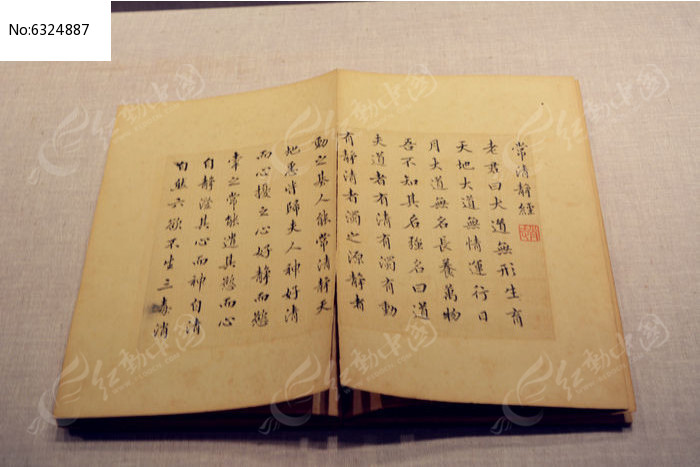 No:6324887
常清靜經
老君曰大道無形生育
天地大道無情運行日
月大道無名長養萬物
吾不知其名強名曰道
夫道者有清有濁有動
有靜清者濁之源靜者
動之基人能常清靜天
地悉皆歸夫人神好清
而心擾之心好靜而慾
牽之常能遣其慾而心
自靜澄其心而神自清
自然六欲不生三毒消
红動中国